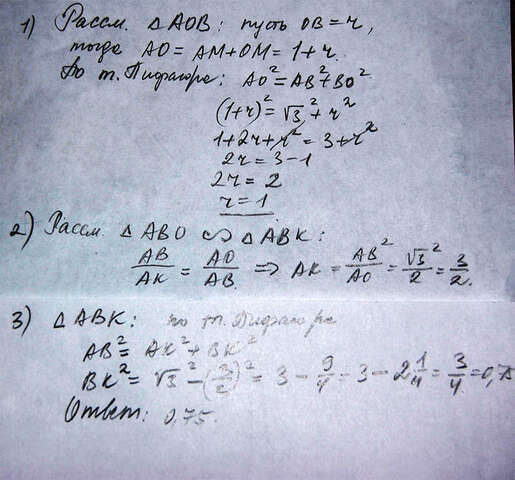 1) Рассм. △AOB: пусть OB = r,
тогда AO = AM + OM = 1 + r.
По т. Пифагора: AO² = AB² + BO²
(1+r)² = √3² + r²
1 + 2r + r² = 3 + r²
2r = 3 - 1
2r = 2
r = 1
2) Рассм. △ABO ∽ △ABK:
AB/AK = AO/AB ⇒ AK = AB²/AO = √3²/2 = 3/2.
3) △ABK: по т. Пифагора
AB² = AK² + BK²
BK² = √3² - (3/2)² = 3 - 9/4 = 3 - 2 1/4 = 3/4 = 0,75
Ответ: 0,75.